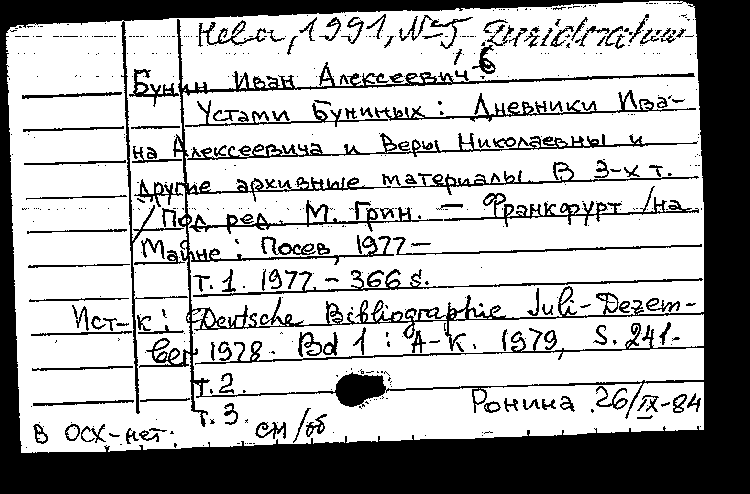 Нева, 1991, №5, Desideratum
Бунин Иван Алексеевич
Устами Буниных: Дневники Ива-
на Алексеевича и Веры Николаевны и
другие архивные материалы. В 3-х т.
/Под ред. М. Грин. – Франкфурт/на
Майне: Посев, 1977–
Т. 1. 1977. – 366 s.
Ист-к: Deutsche Bibliographie Juli-Dezem-
ber 1978. Bd 1: A-K. 1979, S. 241.
Т. 2.
Т. 3.
Ронина 26/IX-84
В ОСХ-нет. см/об